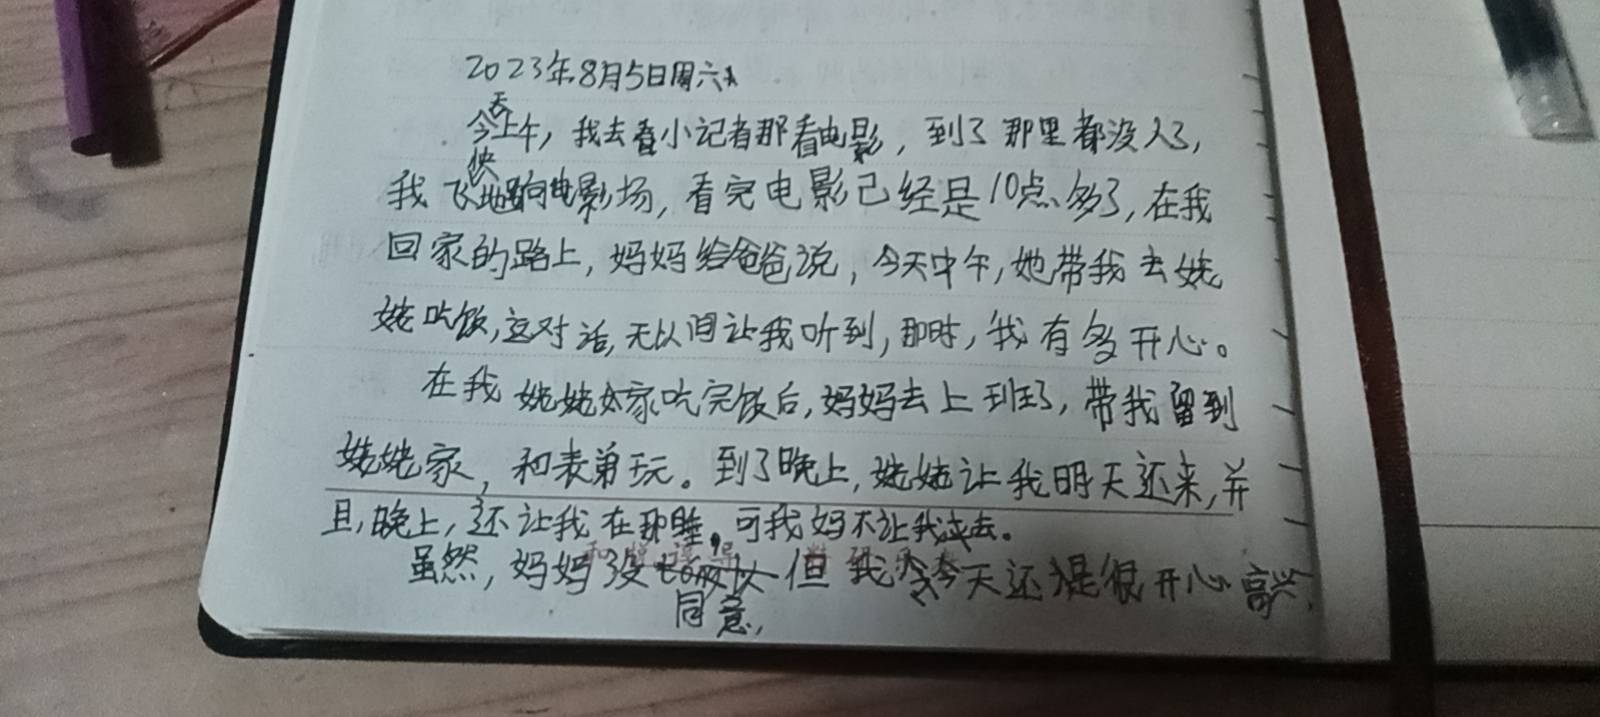 2023年8月5日周六
今天上午，我去看小记者那看电影，到了那里都没人了，
我飞快地跑向电影场，看完电影已经是10点多了，在我
回家的路上，妈妈给爸爸说，今天中午，她带我去姥
姥吃饭，这对话，无以间让我听到，那时，我有多开心。
在我姥姥家吃完饭后，妈妈去上班了，带我留到
姥姥家，和表弟玩。到了晚上，姥姥让我明天还来，并
且，晚上，还让我在那睡，可我妈不让我过去。
虽然，妈妈没同意，但我今天还是很开心高兴